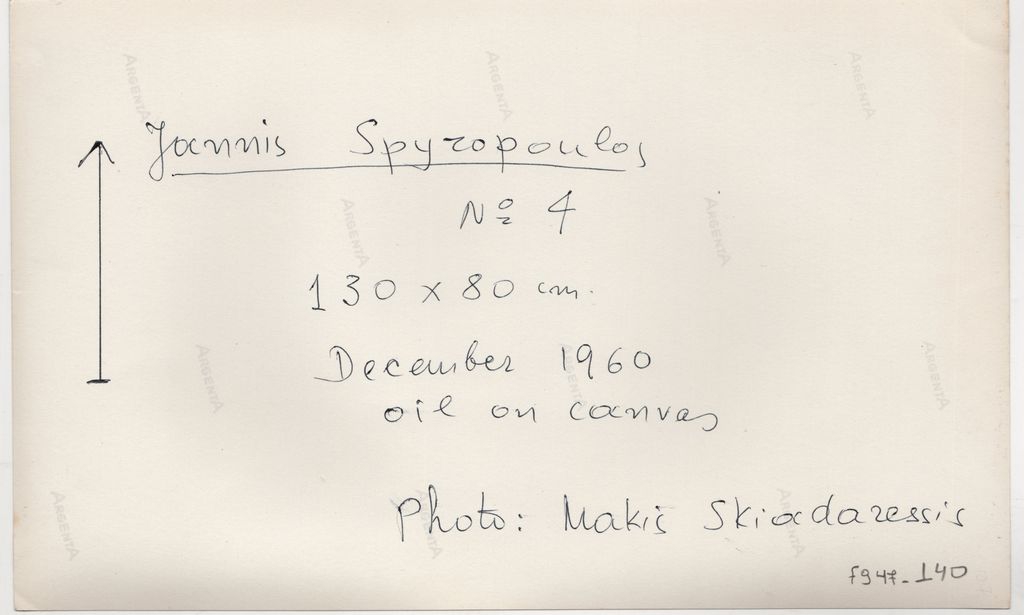 Jannis Spyropoulos
Nº 4
130 x 80 cm.
December 1960
oil on canvas
Photo: Makis Skiadaressis
f947-140
ARGENTA
ARGENTA
ARGENTA
ARGENTA
ARGENTA
ARGENTA
ARGENTA
ARGENTA
ARGENTA
ARGENTA
ARGENTA